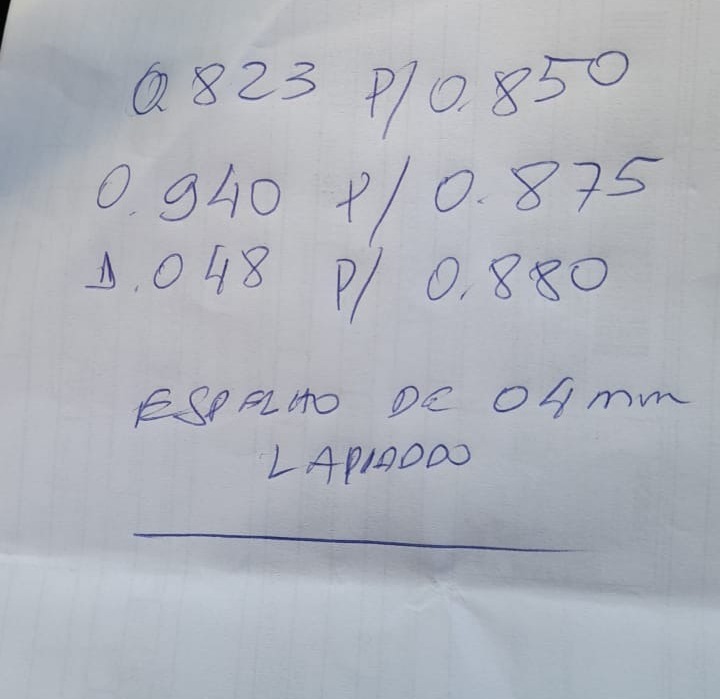 0.823 P/ 0.850
0.940 P/ 0.875
1.048 P/ 0.880
ESPELHO DE 04 mm
LAPIADDO